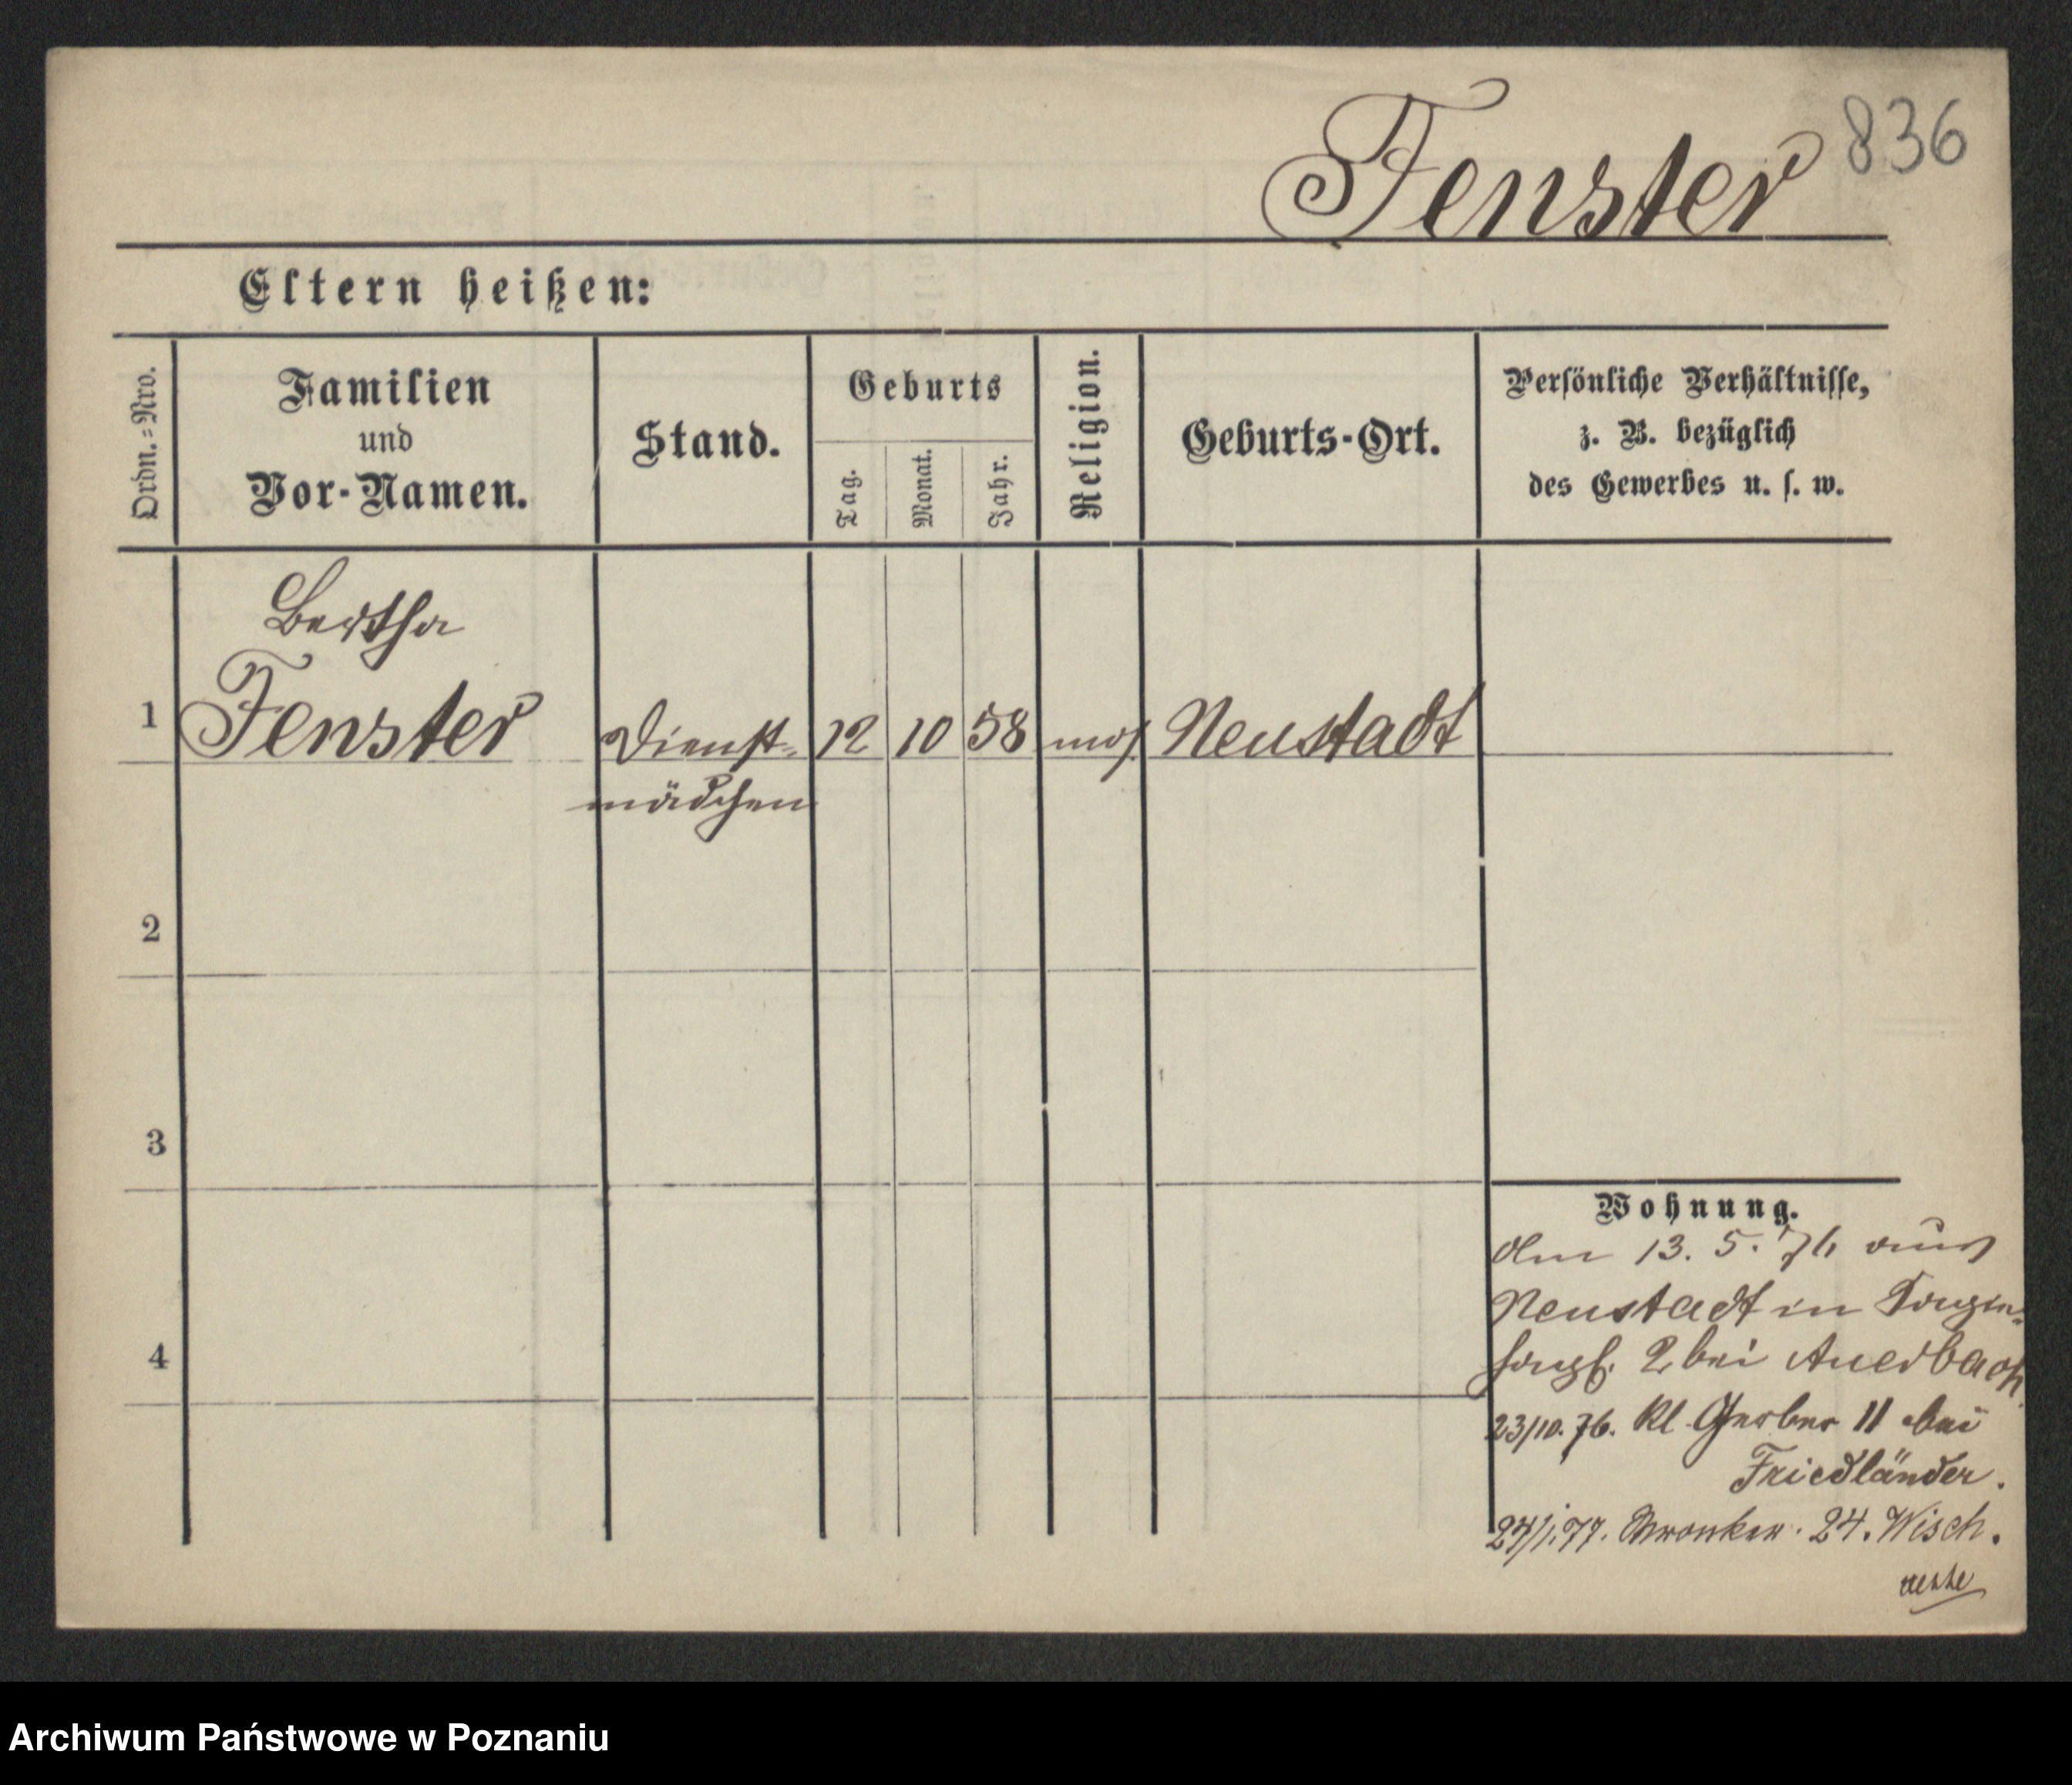 836
Fenster
Eltern heißen:
Ordn.=Nro.
Familien
und
Vor-Namen.
Stand.
Geburts
Tag.
Monat.
Jahr.
Religion.
Geburts-Ort.
Persönliche Verhältnisse,
z. B. bezüglich
des Gewerbes u. s. w.
Bertha
1 Fenster Dienst= 12 10 58 mos. Neustadt
mädchen
2
3
4
Wohnung.
Am 13. 5. 76 aus
Neustadt in
2 bei Auerbach
23/10. 76. Kl. Gerber 11 bei
Friedländer.
24/1. 77. Wronker. 24. Wisch.
Archiwum Państwowe w Poznaniu